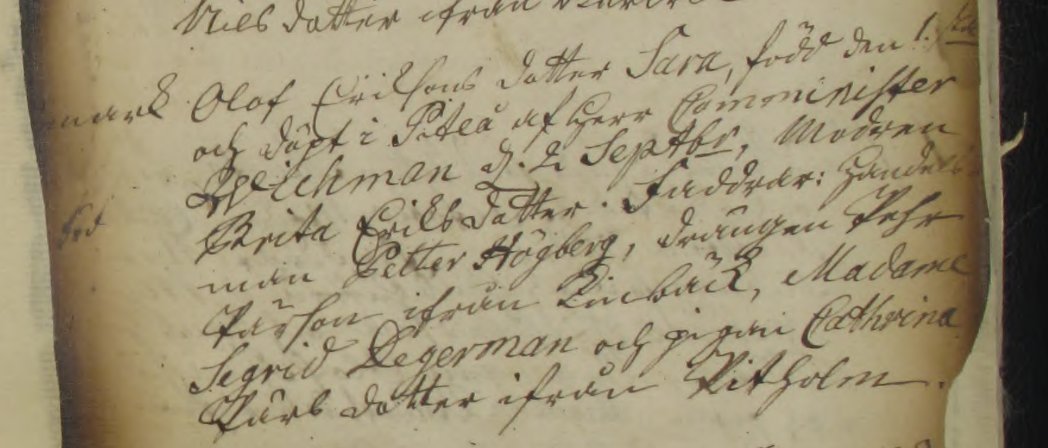 Nils dotter ifrån
mark Olof Erikssons dotter Sara, född den 1.
och döpt i Piteå af Herr Comminister
Weichman d. 2 Septbr, Modren
Brita Eriks dotter. Faddrar: Handels
man Petter Högberg, drängen Pehr
Pärson ifrån Kinbäck, Madame
Segrid Degerman och pigan Cathrina
Pärs dotter ifrån Pitholm.